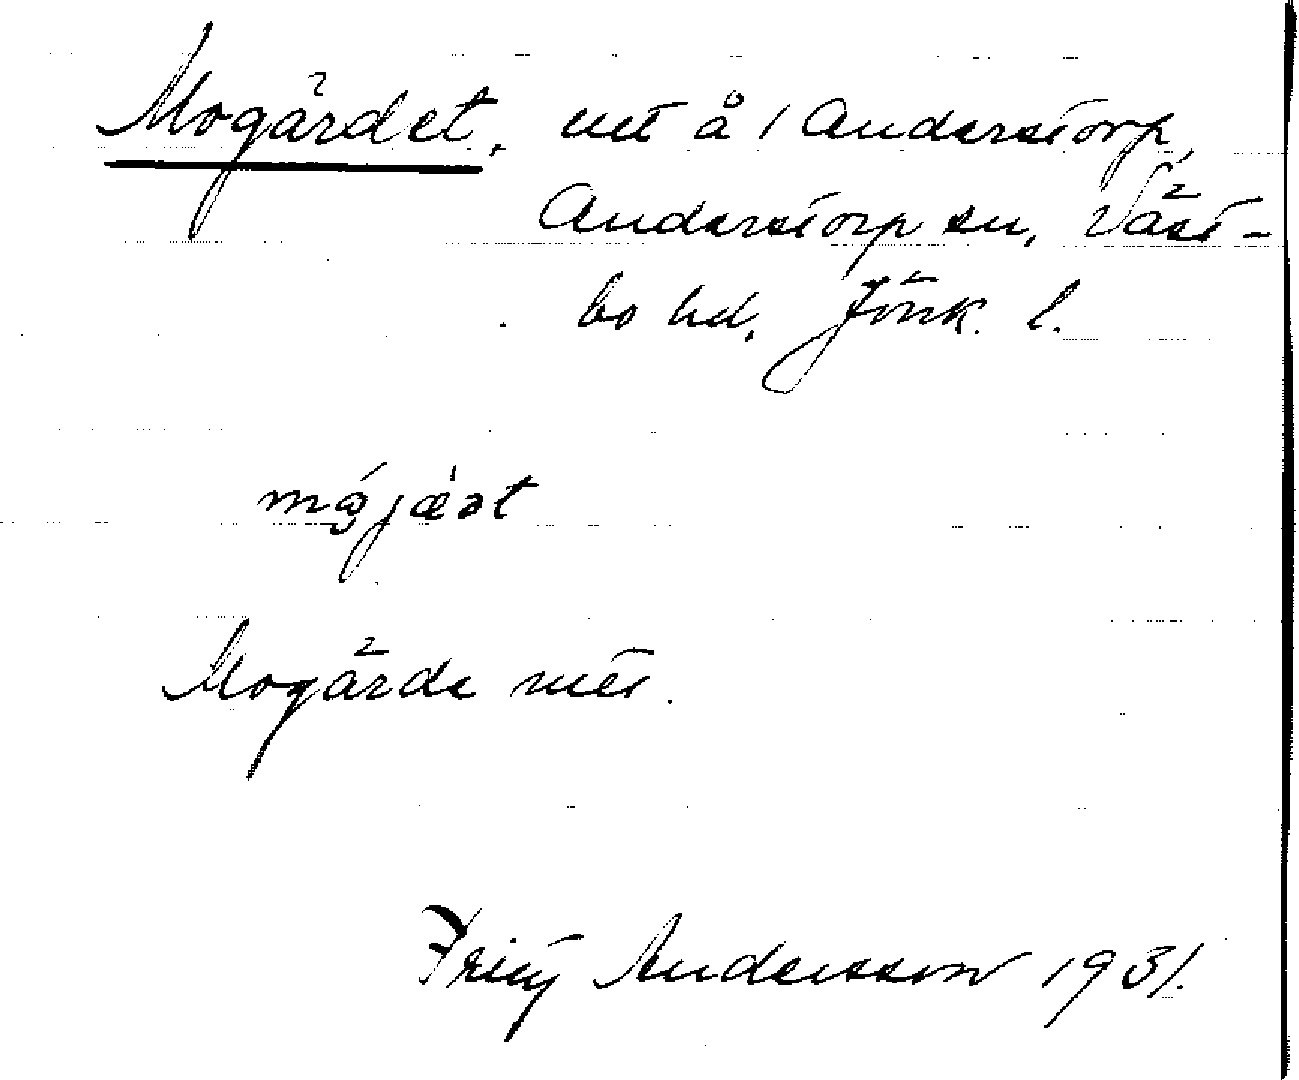 Mogärdet, vid å / Anderstorp,
Anderstorp sn, Väst-
bo hd, Jönk. l.
Mogärde
Fritz Andersson 1931.